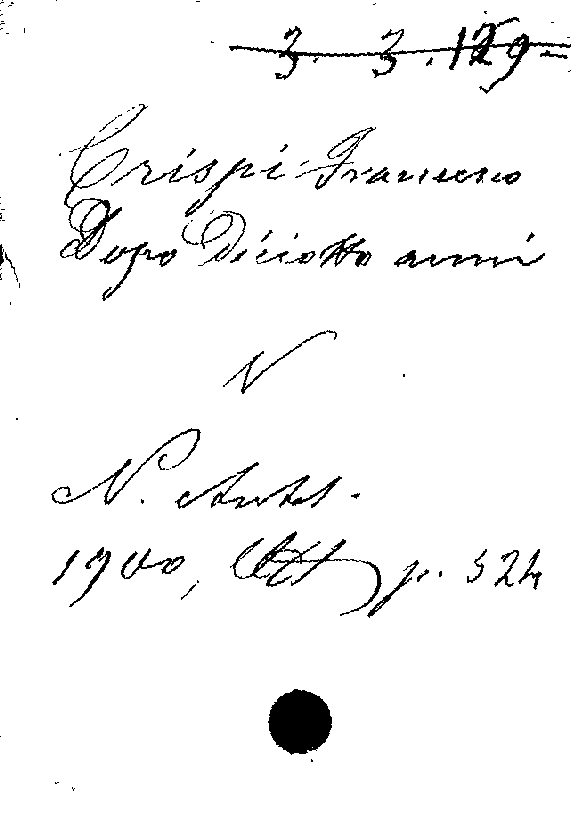 3. 3. 129=
Crispi Francesco
Dopo Diciotto anni
N
N. Antol.
1900, Ott) p. 524